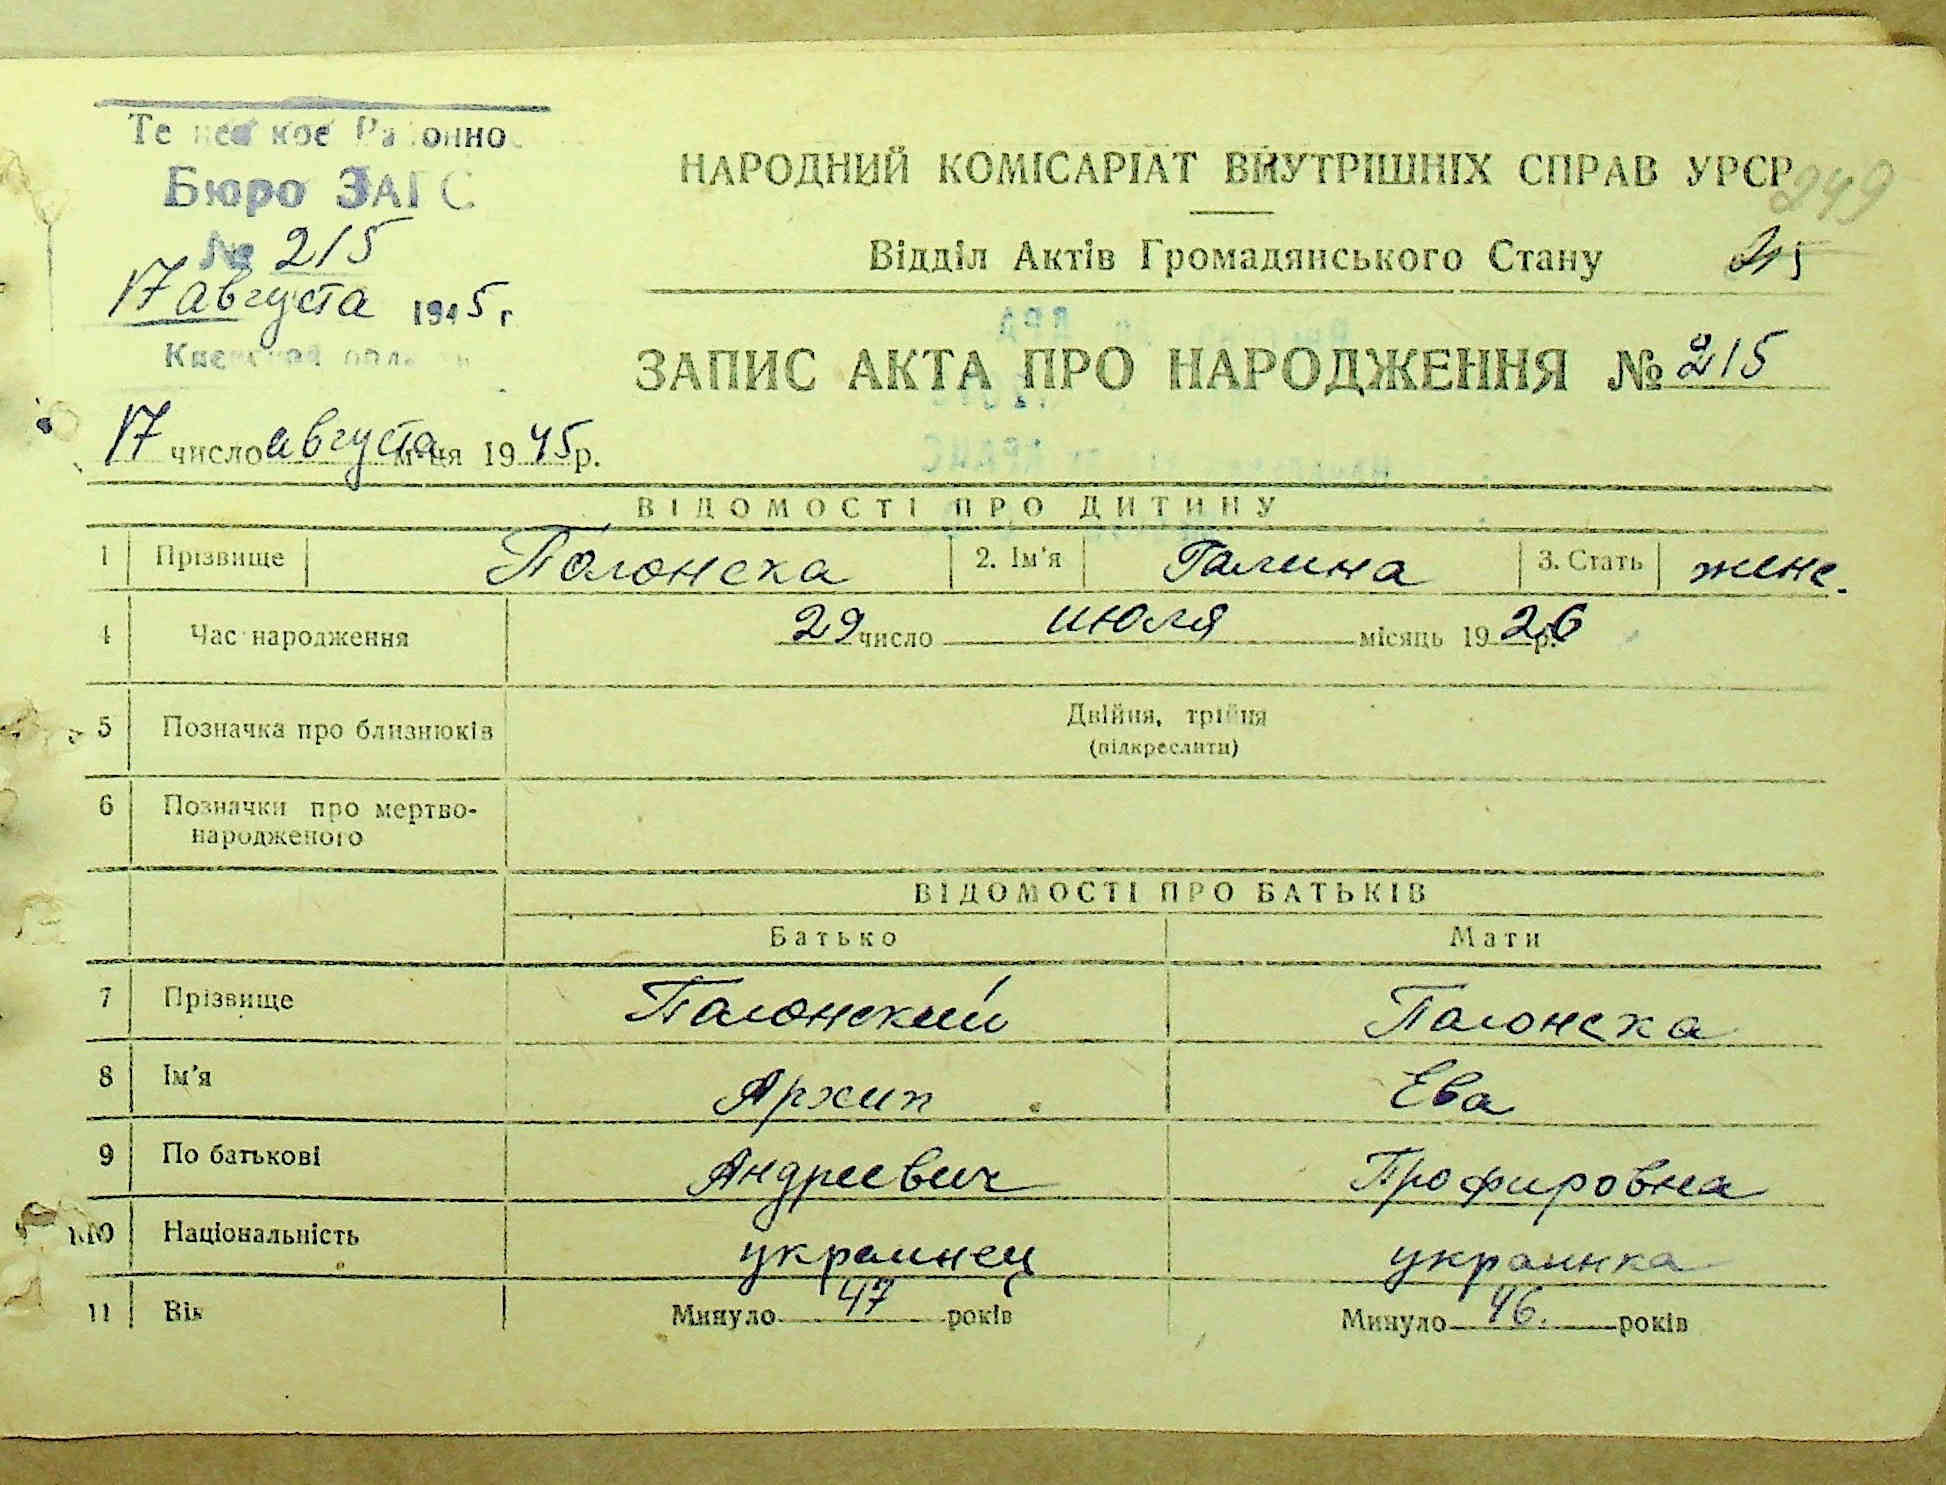 Бюро ЗАГС
№ 215
17 августа 1945 г
НАРОДНИЙ КОМІСАРІАТ ВНУТРІШНІХ СПРАВ УРСР
249
Відділ Актів Громадянського Стану
215
ЗАПИС АКТА ПРО НАРОДЖЕННЯ № 215
17 число августа м-ця 1945 р.
ВІДОМОСТІ ПРО ДИТИНУ
1 Прізвище Полонска 2. Ім'я Галина 3. Стать женс.
4 Час народження 29 число июля місяць 1926 р.
5 Позначка про близнюків Двійня, трійня
(підкреслити)
6 Позначки про мертво-
народженого
ВІДОМОСТІ ПРО БАТЬКІВ
Батько Мати
7 Прізвище Полонский Полонска
8 Ім'я Архип Ева
9 По батькові Андреевич Профировна
10 Національність украинец украинка
11 Вік Минуло 47 років Минуло 46. років